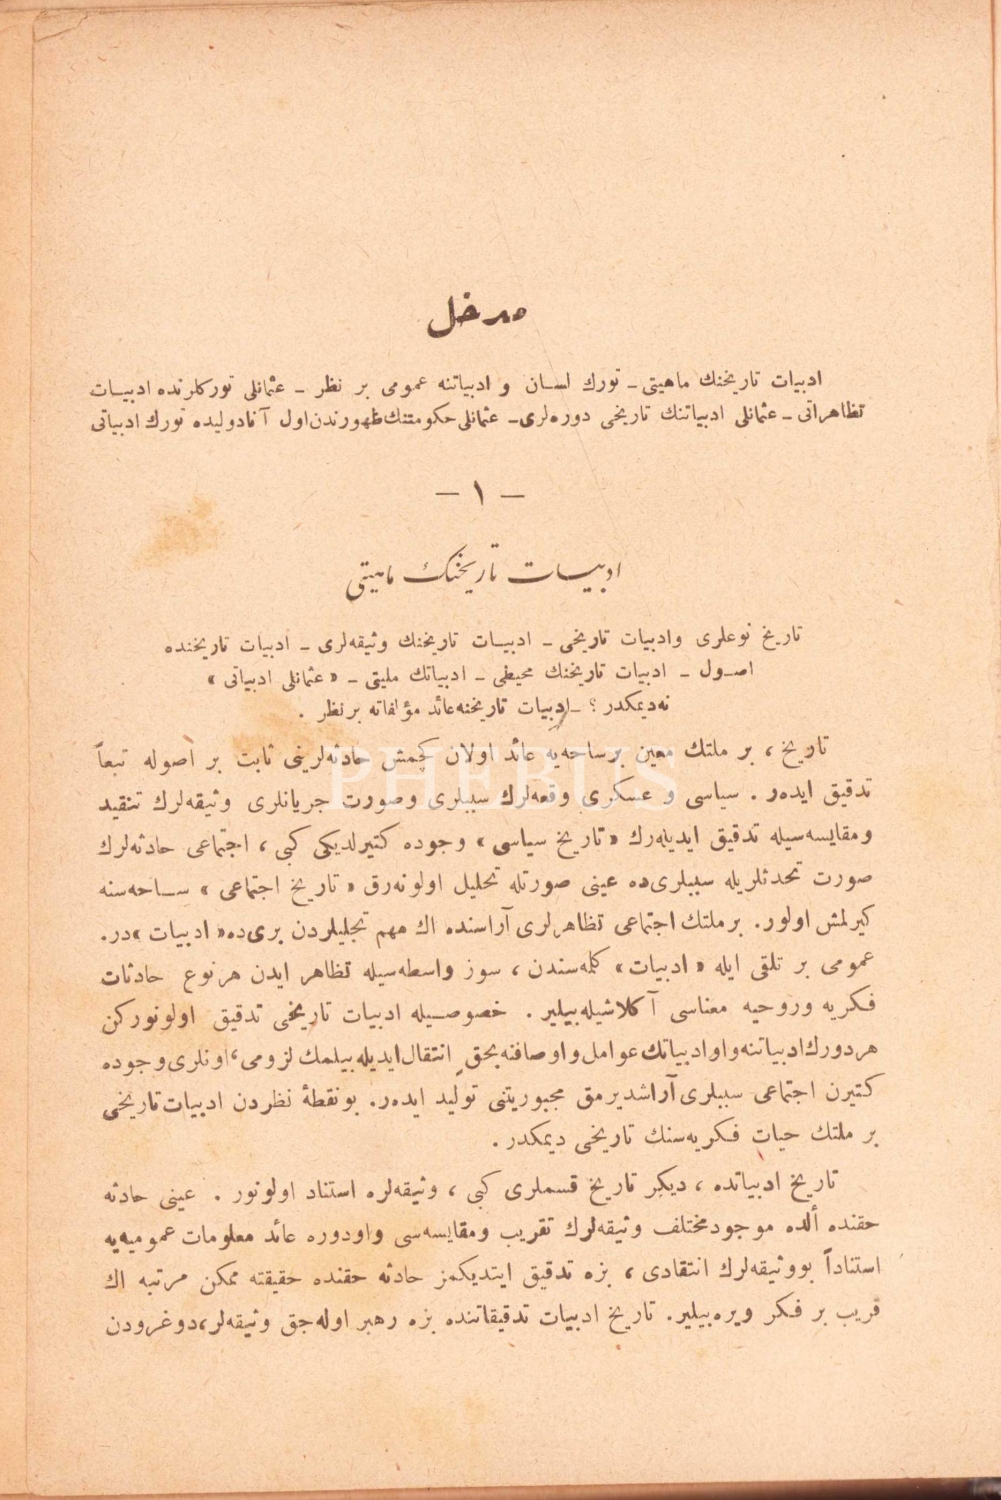 مدخل
ادبيات تاريخنك ماهيتى ـ تورك لسان و ادبياتنه عمومى بر نظر ـ عثمانلى توركلرنده ادبيات
تظاهراتى ـ عثمانلى ادبياتنك تاريخى دوره‌لرى ـ عثمانلى حكومتنك ظهورندن اول آنادوليده تورك ادبياتى
— ١ —
ادبيات تاريخنك ماهيتى
تاريخ نوعلرى وادبيات تاريخى ـ ادبيات تاريخنك وثيقه‌لرى ـ ادبيات تاريخنده
اصول ـ ادبيات تاريخنك محيطى ـ ادبياتك مليتى ـ « عثمانلى ادبياتى »
نه‌ديمكدر ؟ ـ ادبيات تاريخنه عائد مؤلفاته بر نظر .
تاريخ ، بر ملتك معين بر ساحه‌يه عائد اولان كچمش حادثه‌لرينى ثابت بر اصوله تبعاً
تدقيق ايده‌ر . سياسى و عسكرى وقعه‌لرك سببلرى وصورت جريانلرى وثيقه‌لرك تنقيد
ومقايسه‌سيله تدقيق ايديله‌رك « تاريخ سياسى » وجوده كتيرلديكى كبى ، اجتماعى حادثه‌لرك
صورت تحدثلريله سببلرى‌ده عينى صورتله تحليل اولونه‌رق « تاريخ اجتماعى » ساحه‌سنه
كيرلمش اولور . بر ملتك اجتماعى تظاهرلرى آراسنده اك مهم تجليلردن برى‌ده « ادبيات » در.
عمومى بر تلقى ايله « ادبيات » كلمه‌سندن ، سوز واسطه‌سيله تظاهر ايدن هر نوع حادثات
فكريه وروحيه معناسى آكلاشيله‌بيلير . خصوصيله ادبيات تاريخى تدقيق اولونوركن
هر دورك ادبياتنه واو ادبياتك عوامل واوصافنه بحق انتقال ايديله‌بيلمك لزومى ، اونلرى وجوده
كتيرن اجتماعى سببلرى آراشديرمق مجبوريتنى توليد ايده‌ر. بو نقطهٔ نظردن ادبيات تاريخى
بر ملتك حيات فكريه‌سنك تاريخى ديمكدر .
تاريخ ادبياتده ، ديكر تاريخ قسملرى كبى ، وثيقه‌لره استناد اولونور . عينى حادثه
حقنده ألده موجود مختلف وثيقه‌لرك تقريب ومقايسه‌سى واودوره عائد معلومات عموميه‌يه
استناداً بو وثيقه‌لرك انتقادى ، بزه تدقيق ايتديكمز حادثه حقنده حقيقته ممكن مرتبه اك
قريب بر فكر ويره‌بيلير. تاريخ ادبيات تدقيقاتنده بزه رهبر اوله‌جق وثيقه‌لر، دوغرودن
PHEBUS